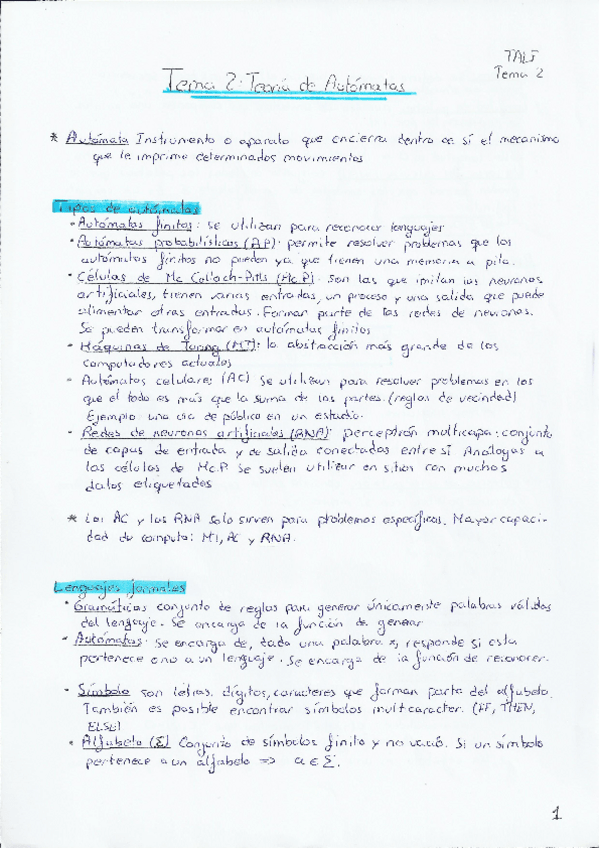 TALF
Tema 2
Tema 2: Teoría de Autómatas
* Autómata Instrumento o aparato que encierra dentro de sí el mecanismo
que le imprime determinados movimientos
Tipos de autómatas
· Autómatas finitos: se utilizan para reconocer lenguajes
· Autómatas probabilísticos (AP): permite resolver problemas que los
autómatas finitos no pueden ya que tienen una memoria a pila.
· Células de Mc Colloch-Pitts (McP). Son las que imitan las neuronas
artificiales, tienen varias entradas, un proceso y una salida que puede
alimentar otras entradas. Forman parte de las redes de neuronas.
Se pueden transformar en autómatas finitos
· Máquinas de Turing (MT): la abstracción más grande de los
computadores actuales
· Autómatas celulares (AC) Se utilizan para resolver problemas en los
que el todo es más que la suma de las partes. (reglas de vecindad)
Ejemplo una ola de público en un estadio.
· Redes de neuronas artificiales (RNA): perceptrón multicapa: conjunto
de capas de entrada y de salida conectadas entre sí Análogas a
las células de McP. Se suelen utilizar en sitios con muchos
datos etiquetados
* Los AC y las RNA solo sirven para problemas específicos. Mayor capaci-
dad de computo: MT, AC y RNA.
Lenguajes formales
· Gramáticas conjunto de reglas para generar únicamente palabras válidas
del lenguaje. Se encarga de la función de generar
· Autómatas: Se encarga de, dada una palabra x, responde si esta
pertenece o no a un lenguaje. Se encarga de la función de reconocer.
· Símbolo son letras, dígitos, caracteres que forman parte del alfabeto.
También es posible encontrar símbolos multicaracter. (IF, THEN,
ELSE)
· Alfabeto (Σ) Conjunto de símbolos finito y no vacío. Si un símbolo
pertenece a un alfabeto => a ∈ Σ.
1